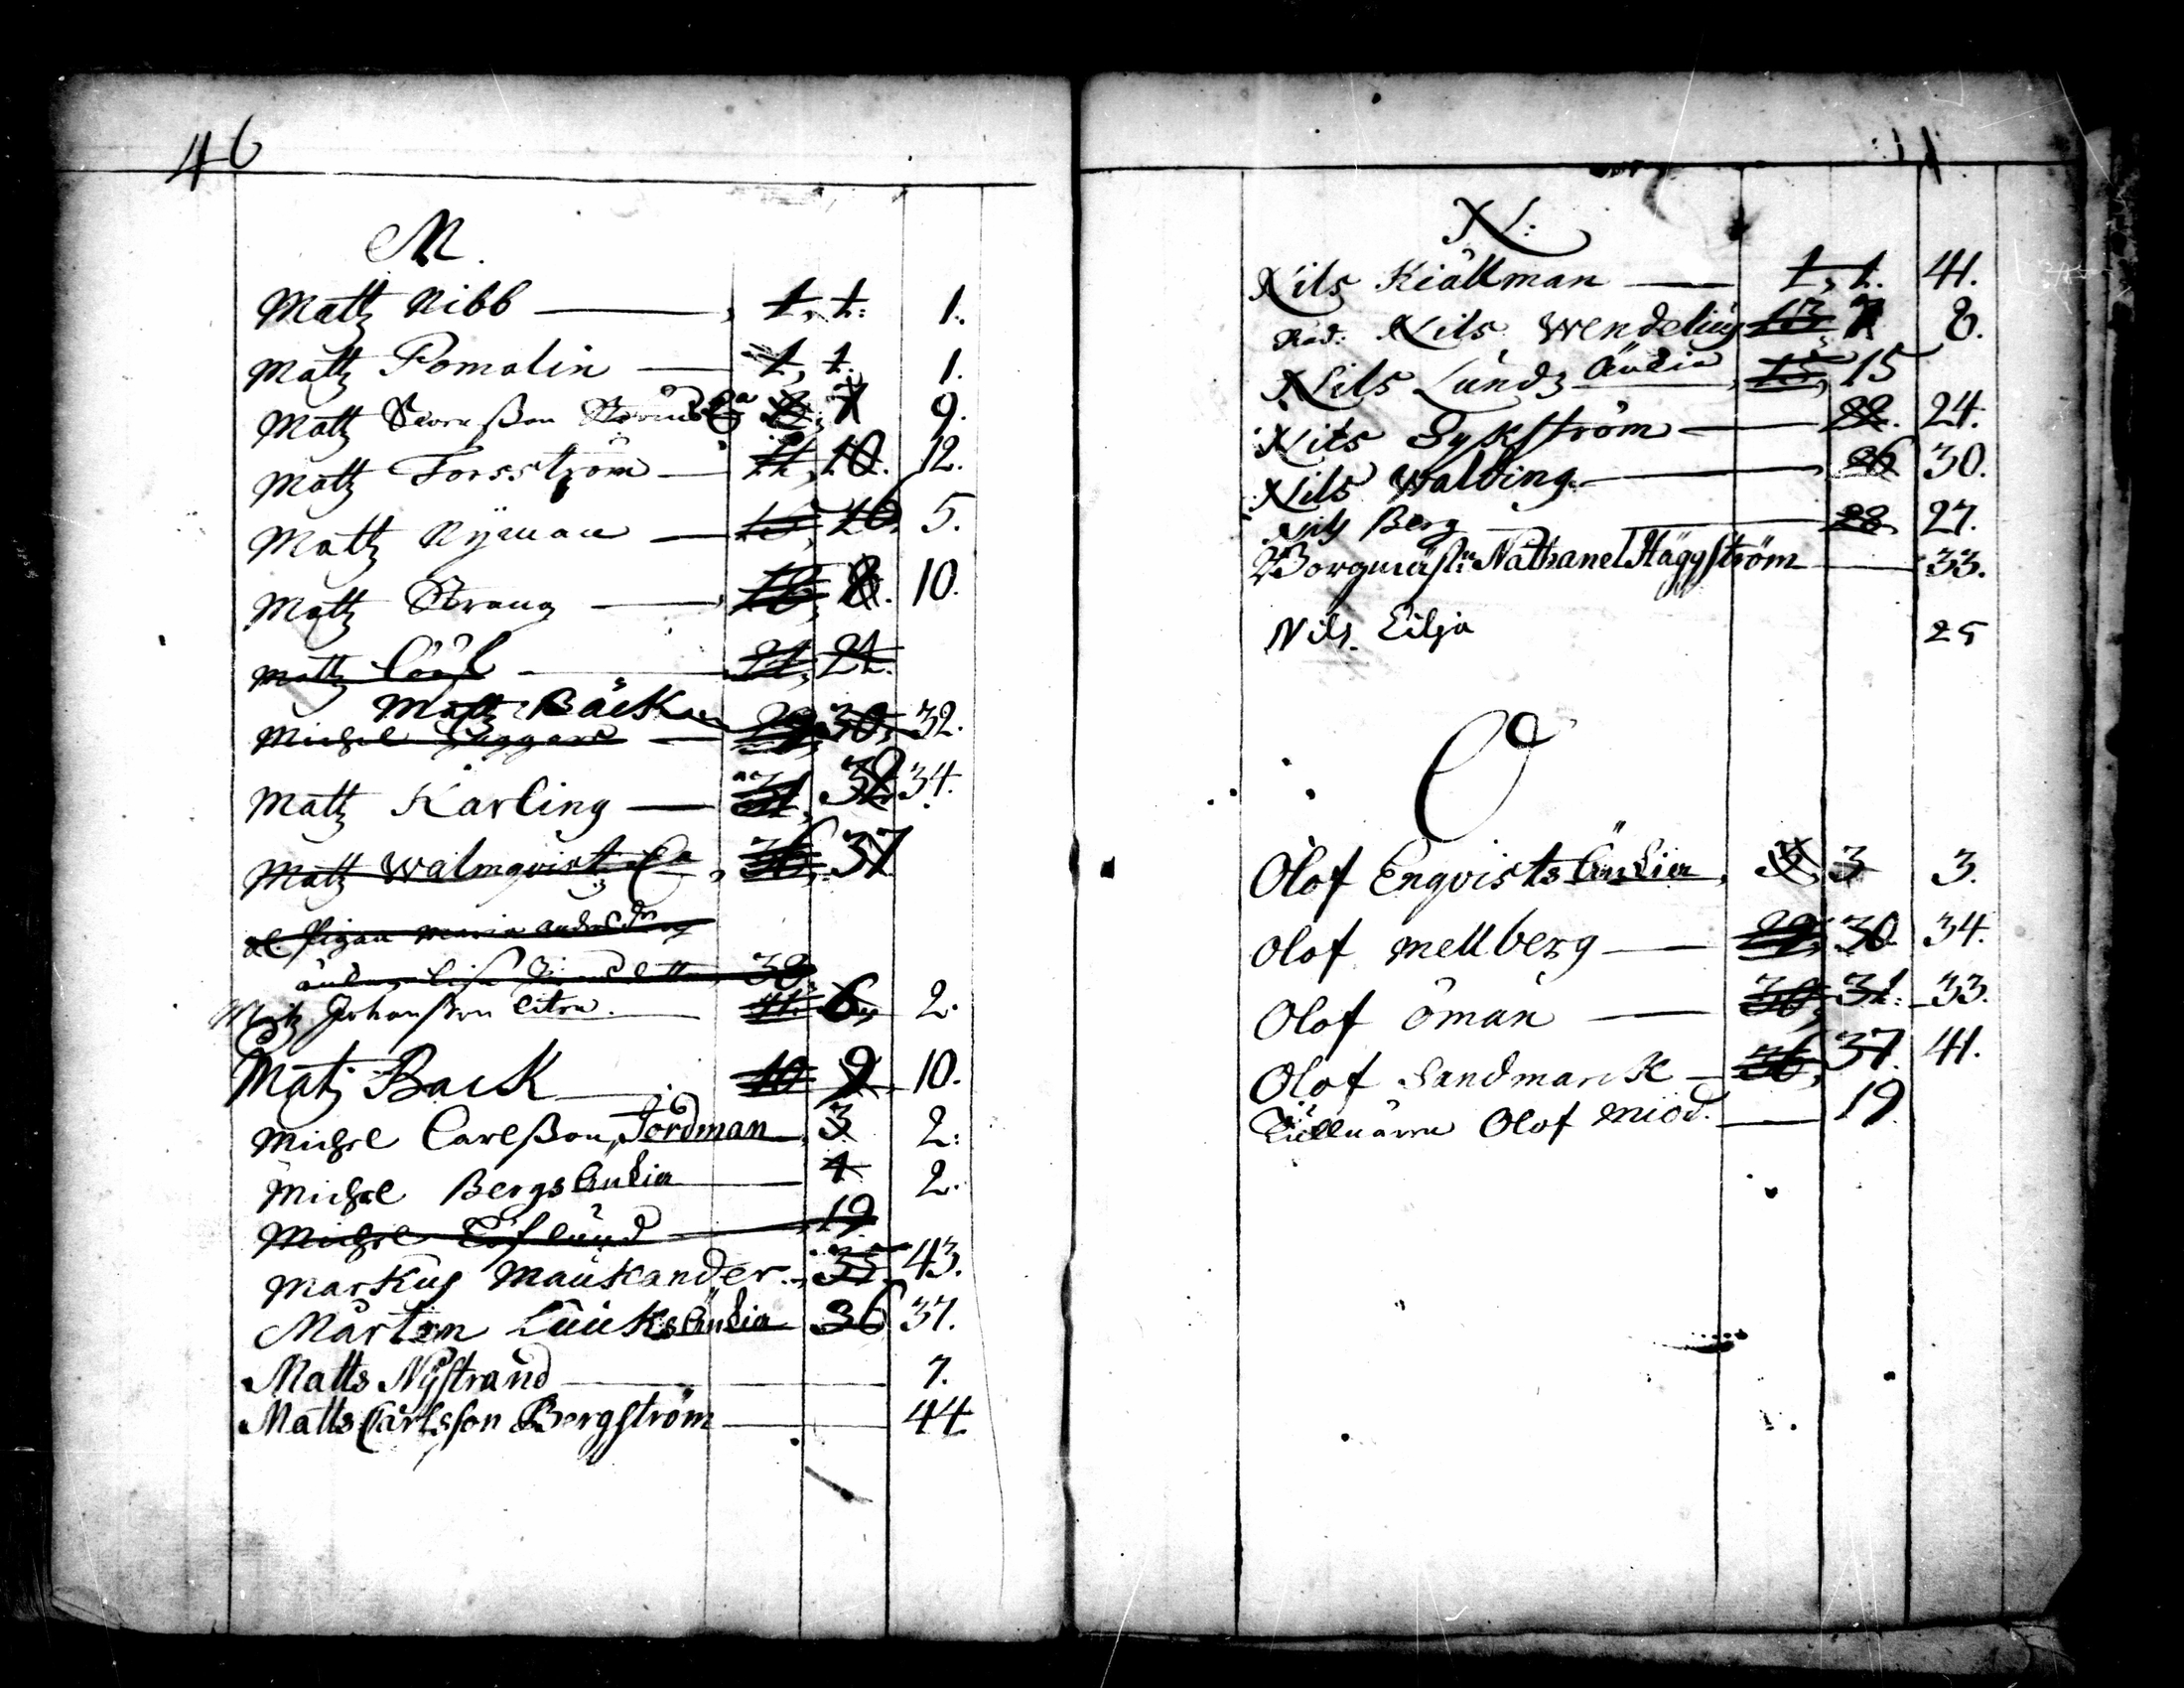 46
M.
Matz Nibb 1, 1. 1.
Matz Pomalin 1, 1. 1.
Matz 7 9.
Matz Forsström 11, 10. 12.
Matz Nyman 15, 16, 5.
Matz Strang 8. 10.
Matz 21, 21.
Matz Bäck
Michel 29, 30, 32.
Matz Karling 31, 32 34.
Matz Walmqvist 36, 37
Pigan Maria
38.
Matz Johansson 6 2.
Matz Back 10 9 10.
Michel Carlsson, Jordman 3 2.
Michel Bergs Änkia 4 2.
Michel 19
Markus Maukander 35 43.
Mårten Luuks Änkia 36 37.
Matts Nystrand 7.
Matts Carlsson Bergström 44
N:
Nils Kiällman 1, 1. 41.
Råd: Nils Wendelius 13 7 8.
Nils Lunds Änkia 15, 15
Nils Dykström 22. 24.
Nils Walding 26 30.
Nils Berg 28 27.
Borgmäst: Nathanel Häggström 33.
Nils Lilja 25
O
Olof Enqvists Änkia, 3, 3 3.
Olof Mellberg 29, 30 34.
Olof Öman 30, 31. 33.
Olof Sandmark 36, 37. 41.
Olof Miöd. 19